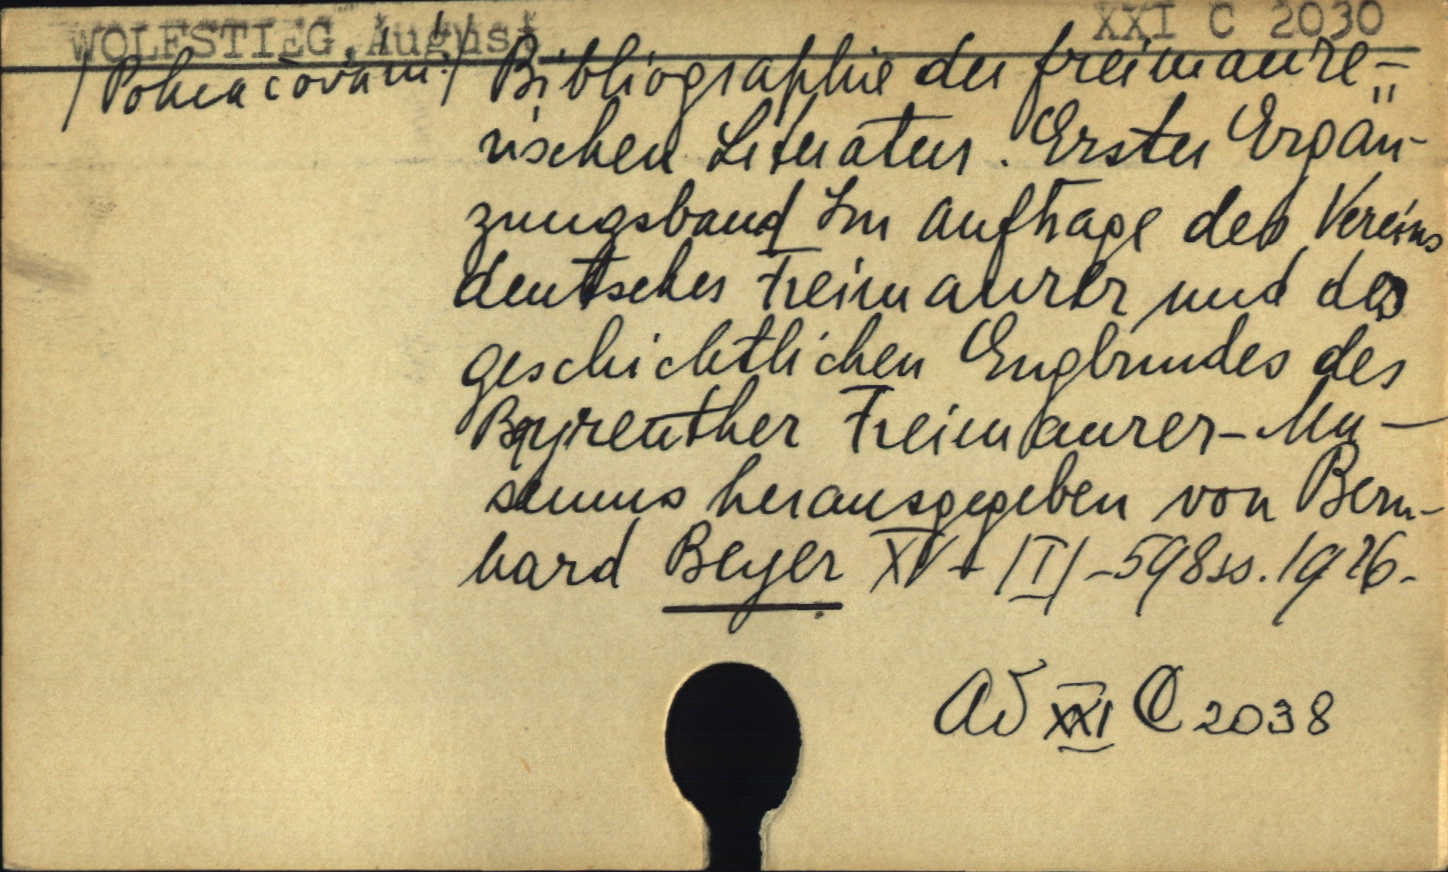 WOLFSTIEG, August XXI C 2030
/Pokračování:/ Bibliographie der freimaure-
rischen Literatur. Erster Ergän-
zungsband Im Auftrage des Vereins
deutscher Freimaurer und des
geschichtlichen Engbundes des
Bayreuther Freimaurer-Mu-
seums herausgegeben von Bern-
hard Beyer XV + /I/ - 598 ss. 1926.
Ad XXI C 2038